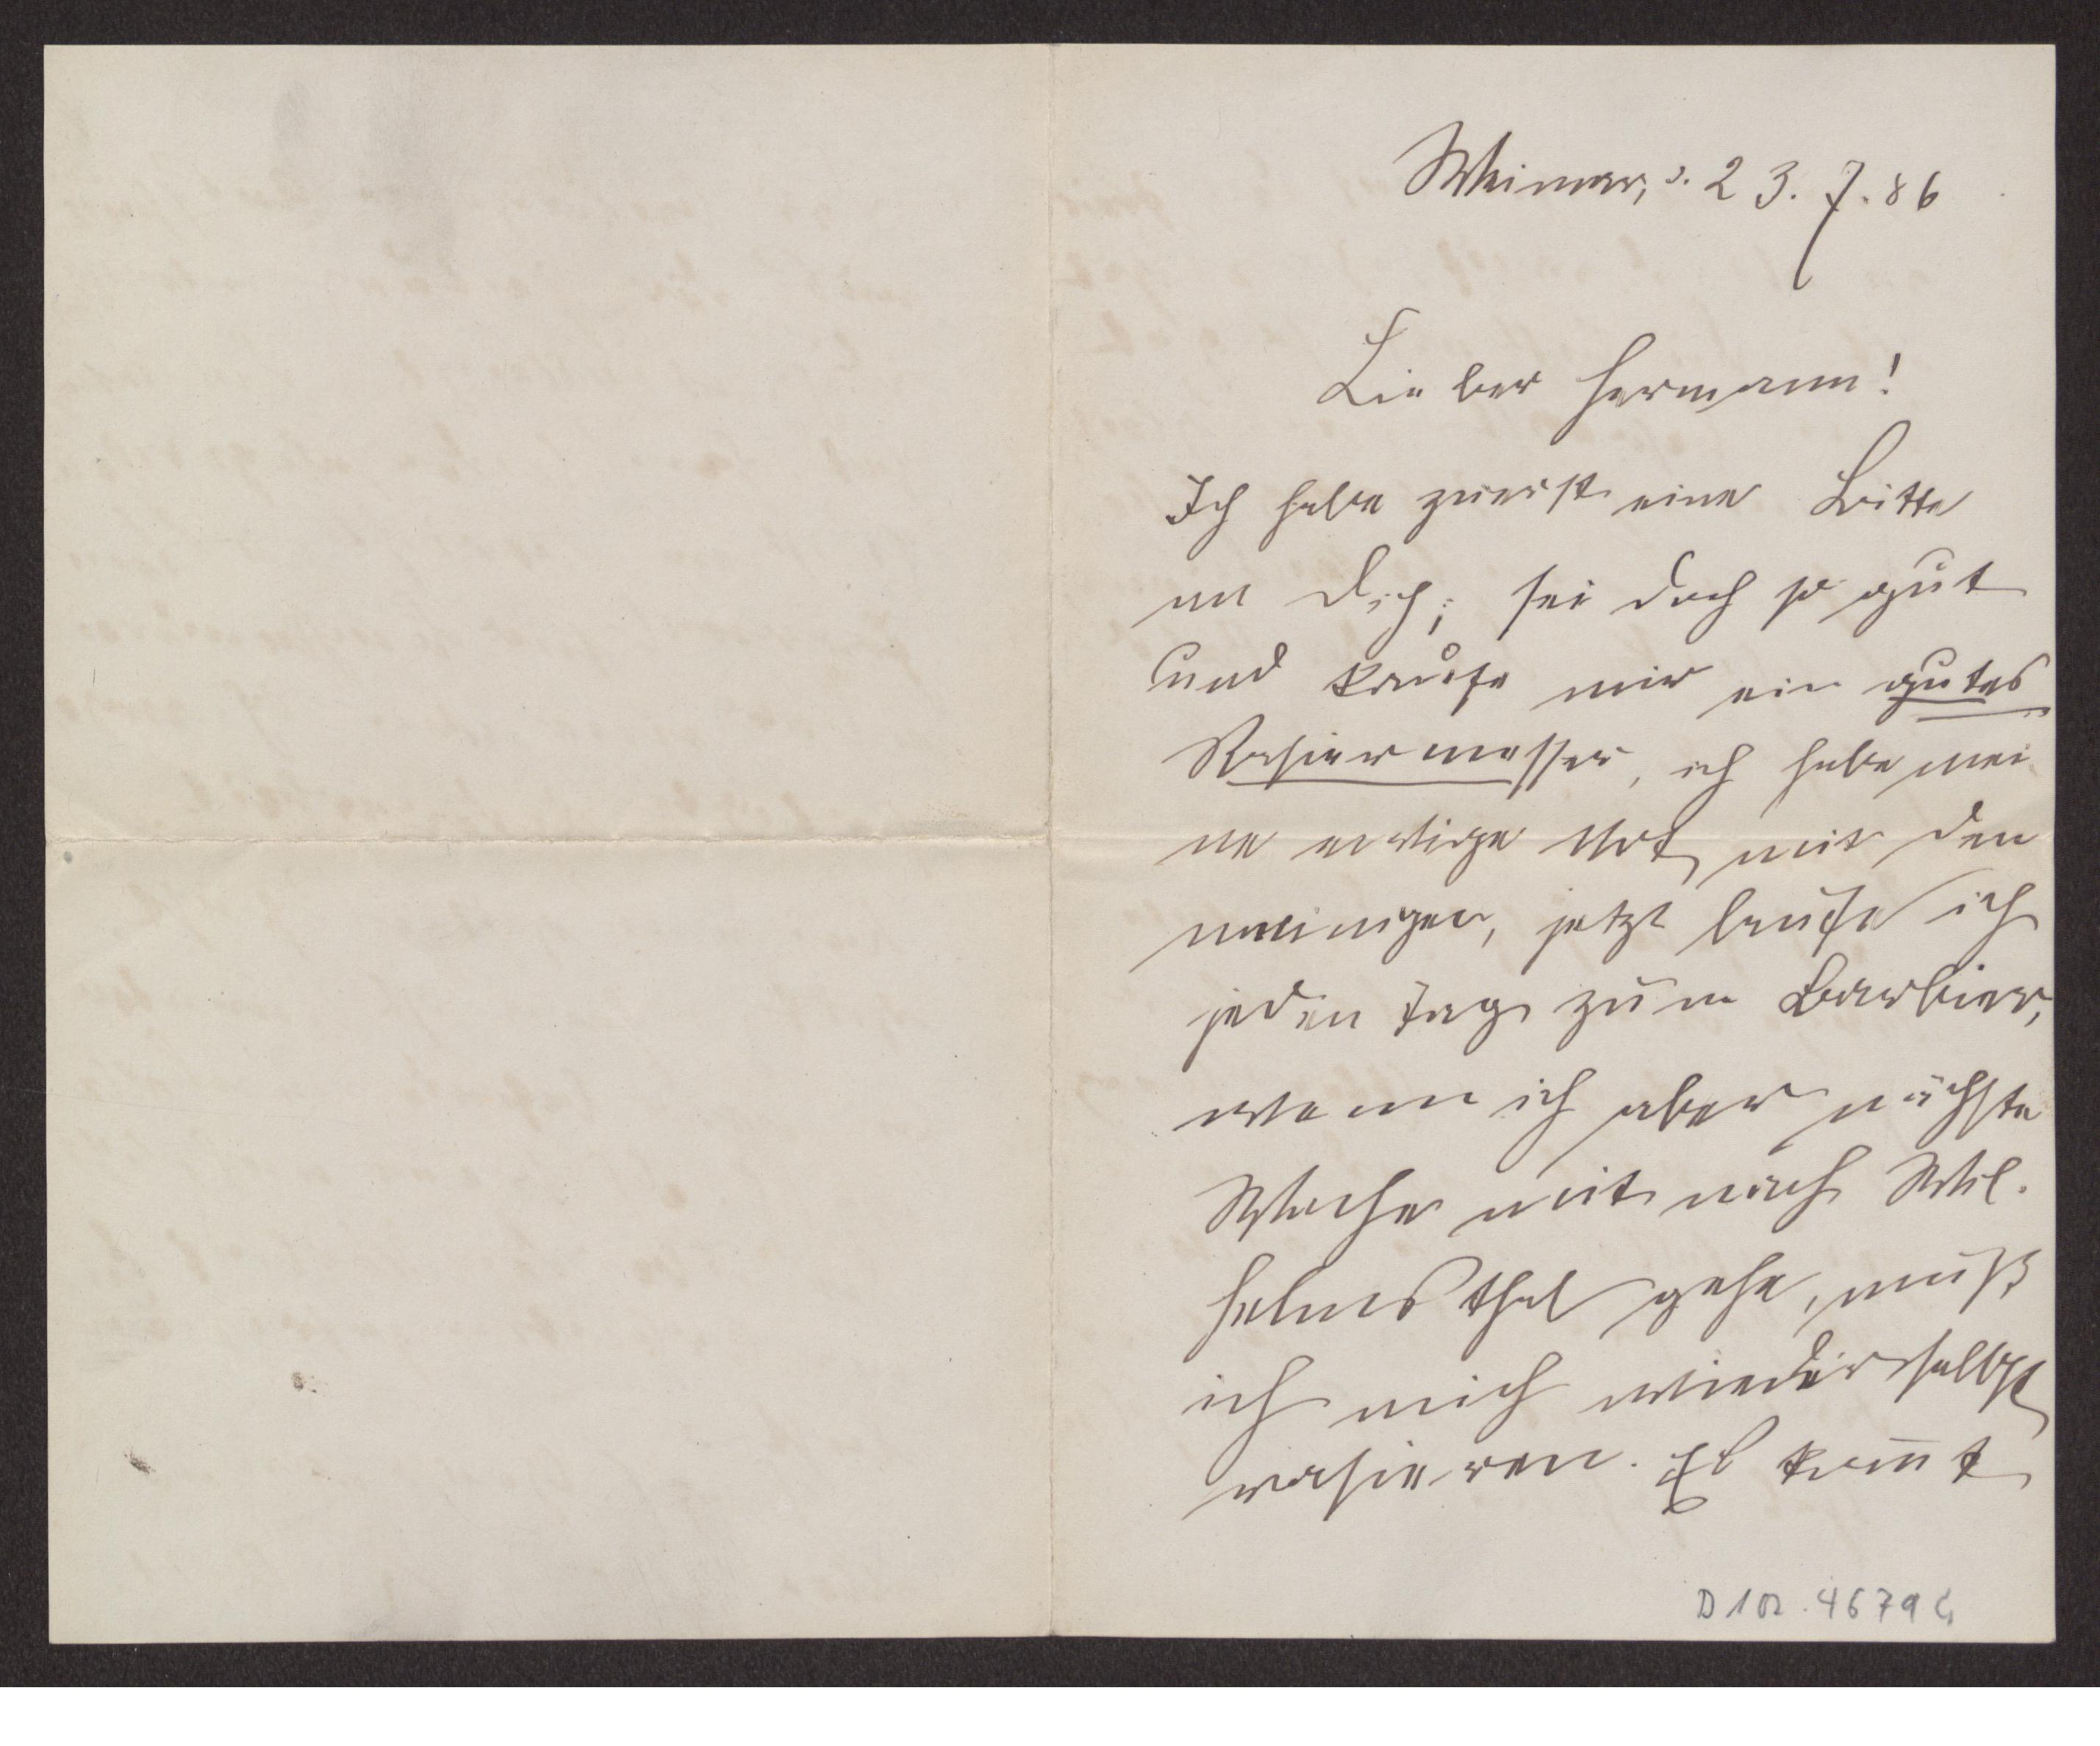 Weimar, d. 23. 7. 86
Lieber Hermann!
Ich habe zuerst eine Bitte
an Dich; sei doch so gut
und kaufe mir ein gutes
Rasiermesser, ich habe mei
ne ewige Not mit den
meinigen, jetzt laufe ich
jeden Tag zum Barbier,
wenn ich aber nächste
Woche mit nach Wil-
helmsthal gehe, muß
ich mich wieder selbst
rasieren. Es kom̄t
D 102.4679